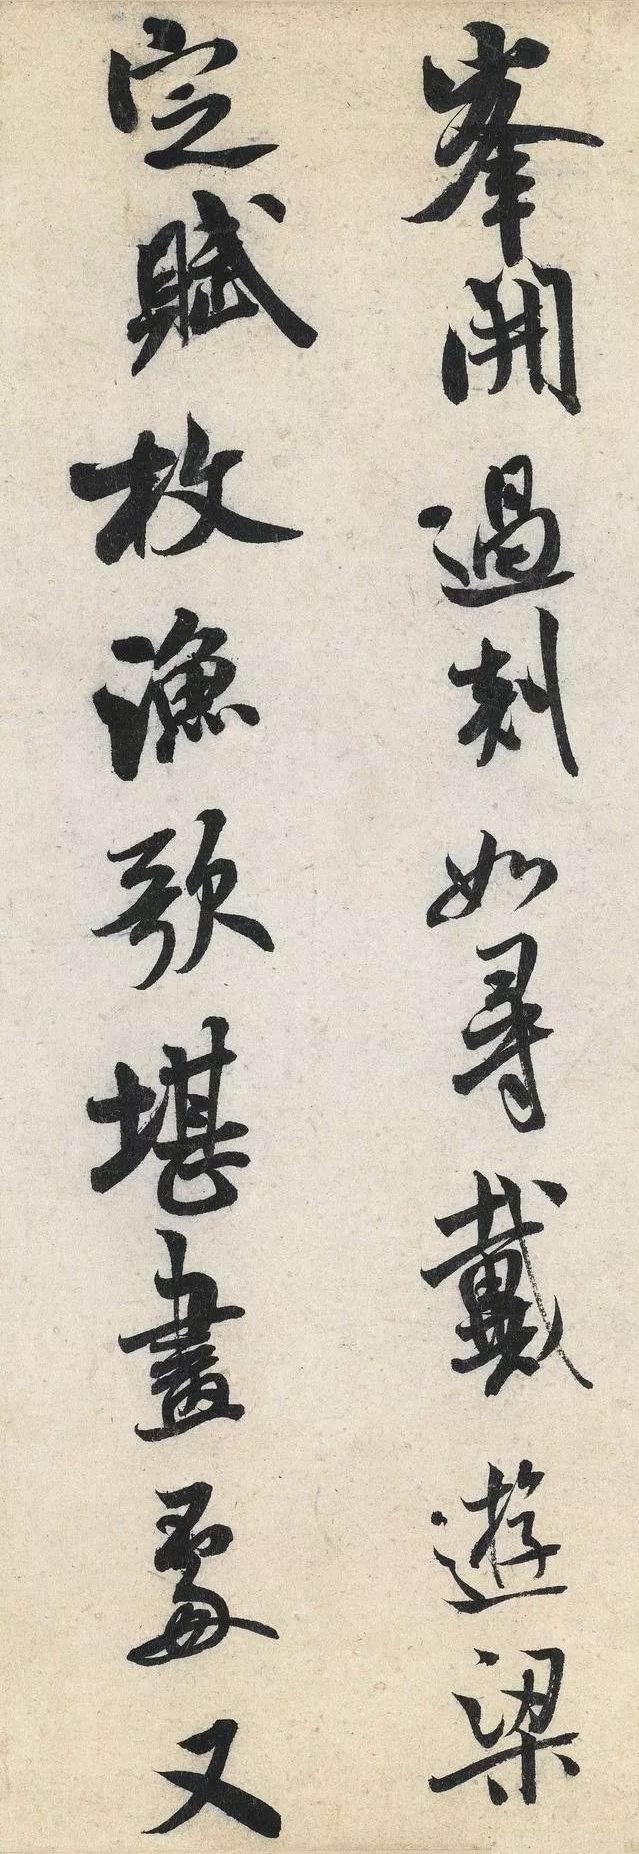 峯開過剡如尋戴遊梁
定賦枚漁歌堪畫處又